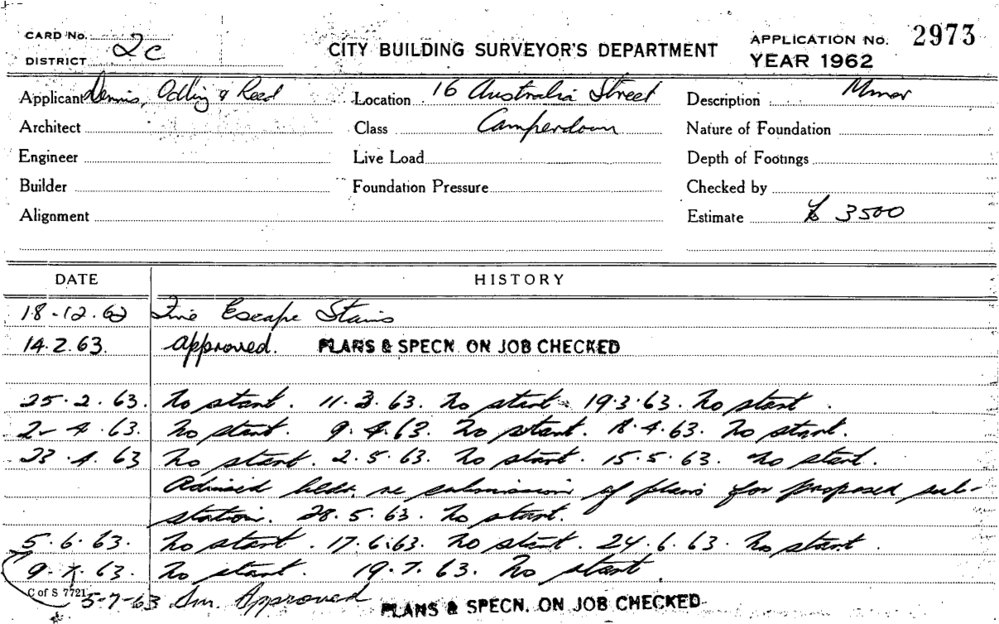 CARD No. 2c
DISTRICT
CITY BUILDING SURVEYOR'S DEPARTMENT
APPLICATION No. 2973
YEAR 1962
Applicant Dennis, Odling & Reed
Location 16 Australia Street
Description Minor
Architect
Class Camperdown
Nature of Foundation
Engineer
Live Load
Depth of Footings
Builder
Foundation Pressure
Checked by
Alignment
Estimate £ 3500
DATE HISTORY
18-12.62 Fire Escape Stairs
14.2.63. Approved. PLANS & SPECN. ON JOB CHECKED
25.2.63. No start. 11.3.63. No start. 19.3.63. No start.
2-4.63. No start. 9.4.63. No start. 18.4.63. No start.
23.4.63 No start. 2.5.63. No start. 15.5.63. No start.
Advised bldr. re submission of plans for proposed sub-
station. 28.5.63. No start.
5.6.63. No start. 17.6.63. No start. 24.6.63. No start.
9.7.63. No start. 19.7.63. No start
C of S 7721
5-7-63 Approved PLANS & SPECN. ON JOB CHECKED